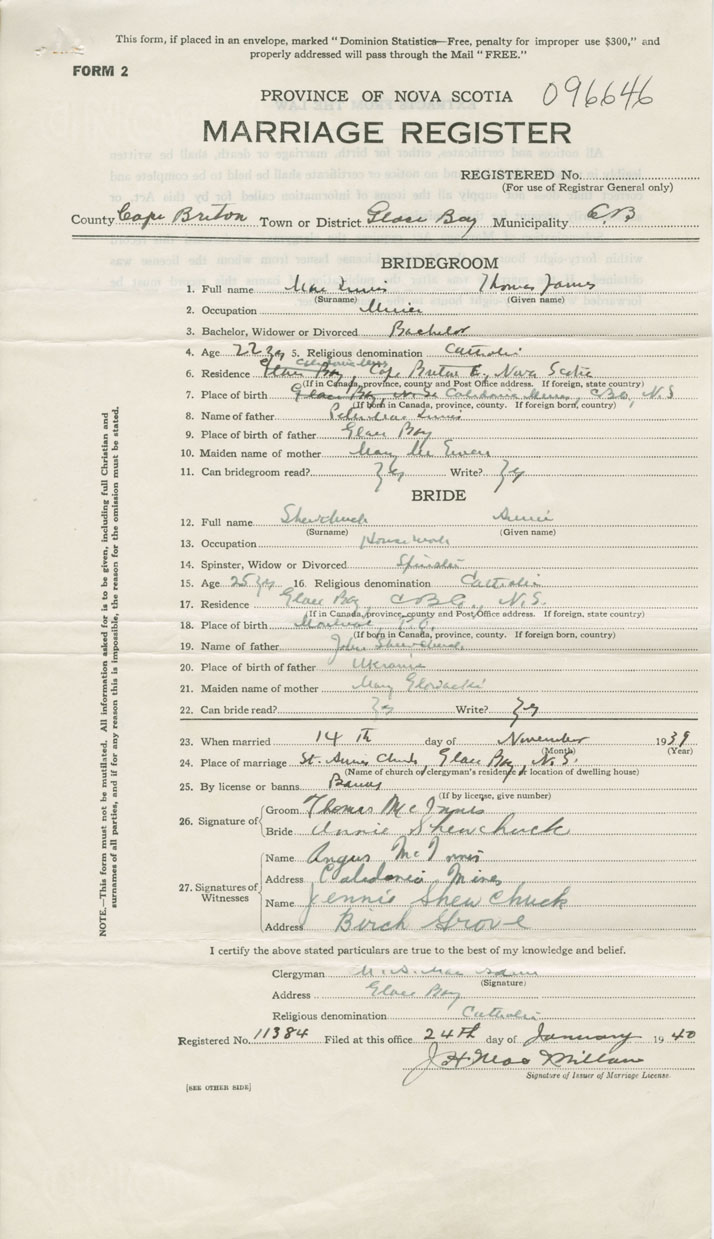 This form, if placed in an envelope, marked "Dominion Statistics—Free, penalty for improper use $300," and
properly addressed will pass through the Mail "FREE."
FORM 2
PROVINCE OF NOVA SCOTIA 096646
MARRIAGE REGISTER
REGISTERED No.
(For use of Registrar General only)
County Cape Briton Town or District Glace Bay Municipality C.B
BRIDEGROOM
1. Full name Mac Innis Thomas James
(Surname) (Given name)
2. Occupation Miner
3. Bachelor, Widower or Divorced Bachelor
4. Age 22 yrs 5. Religious denomination Catholic
Caledonia Mines
6. Residence Bay, Cape Breton Nova Scotia
(If in Canada, province, county and Post Office address. If foreign, state country)
7. Place of birth Glace Bay, Caledonia Mines, C.B., N.S
(If born in Canada, province, county. If foreign born, country)
8. Name of father Peter Mac Innis
9. Place of birth of father Glace Bay
10. Maiden name of mother Mary Mc Ewen
11. Can bridegroom read? Yes Write? Yes
BRIDE
12. Full name Shewchuck Annie
(Surname) (Given name)
13. Occupation Housework
14. Spinster, Widow or Divorced Spinster
15. Age 25 yrs 16. Religious denomination Catholic
17. Residence Glace Bay, N.S.
(If in Canada, province, county and Post Office address. If foreign, state country)
18. Place of birth Montreal, P.Q.
(If born in Canada, province, county. If foreign born, country)
19. Name of father John Shewchuck
20. Place of birth of father Ukrania
21. Maiden name of mother Mary
22. Can bride read? Yes Write? Yes
23. When married 14 th day of November 1939
(Month) (Year)
24. Place of marriage St. Annes Church, Glace Bay, N.S.
(Name of church or clergyman's residence or location of dwelling house)
25. By license or banns Banns
(If by license, give number)
26. Signature of Groom Thomas McInnis
Bride Annie Shewchuck
27. Signatures of Witnesses Name Angus McInnis
Address Caledonia Mines
Name Jennie Shewchuck
Address Birch Grove
I certify the above stated particulars are true to the best of my knowledge and belief.
Clergyman
(Signature)
Address Glace Bay
Religious denomination Catholic
Registered No. 11384 Filed at this office 24th day of January 1940
J H MacMillan
Signature of Issuer of Marriage License.
[SEE OTHER SIDE]
NOTE.—This form must not be mutilated. All information asked for is to be given, including full Christian and
surnames of all parties, and if for any reason this is impossible, the reason for the omission must be stated.